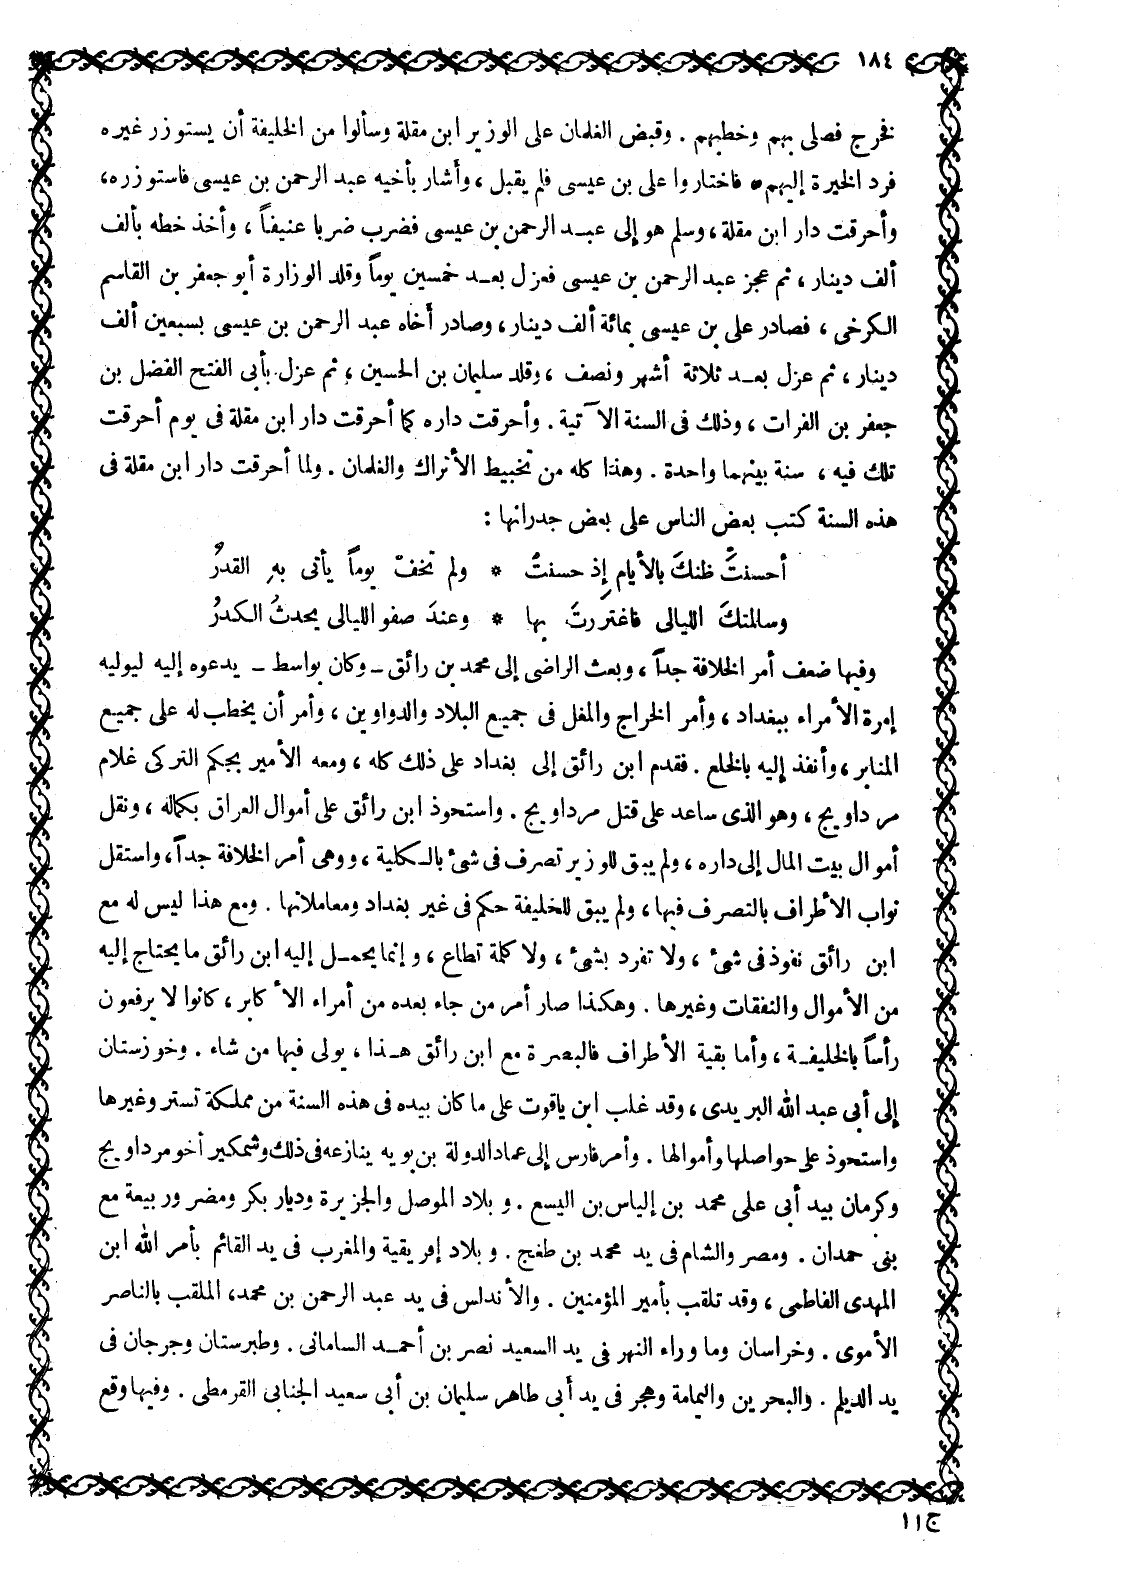 ١٨٤
فخرج فصلى بهم وخطبهم . وقبض الغلمان على الوزير ابن مقلة وسألوا من الخليفة أن يستوزر غيره
فرد الخيرة إليهم فاختاروا على بن عيسى فلم يقبل ، وأشار بأخيه عبد الرحمن بن عيسى فاستوزره،
وأحرقت دار ابن مقلة ، وسلم هو إلى عبد الرحمن بن عيسى فضرب ضربا عنيفاً ، وأخذ خطه بألف
ألف دينار ، ثم عجز عبد الرحمن بن عيسى فعزل بعد خمسين يوماً وقلد الوزارة أبو جعفر بن القاسم
الكرخى ، فصادر على بن عيسى بمائة ألف دينار ، وصادر أخاه عبد الرحمن بن عيسى بسبعين ألف
دينار ، ثم عزل بعد ثلاثة أشهر ونصف ، وقلد سليمان بن الحسين ، ثم عزل بأبى الفتح الفضل بن
جعفر بن الفرات ، وذلك فى السنة الآتية . وأحرقت داره كما أحرقت دار ابن مقلة فى يوم أحرقت
تلك فيه ، سنة بينهما واحدة . وهذا كله من تخبيط الأتراك والغلمان . ولما أحرقت دار ابن مقلة فى
هذه السنة كتب بعض الناس على بعض جدرانها :
أحسنتَ ظنكَ بالأيام إذ حسنتْ * ولم تخفْ يوماً يأتى بهِ القدرُ
وسالمتكَ الليالى فاغتررتَ بها * وعندَ صفو الليالى يحدثُ الكدرُ
وفيها ضعف أمر الخلافة جداً ، وبعث الراضى إلى محمد بن رائق ـ وكان بواسط ـ يدعوه إليه ليوليه
إمرة الأمراء ببغداد ، وأمر الخراج والمغل فى جميع البلاد والدواوين ، وأمر أن يخطب له على جميع
المنابر ، وأنفذ إليه بالخلع . فقدم ابن رائق إلى بغداد على ذلك كله ، ومعه الأمير بجكم التركى غلام
مرداويج ، وهو الذى ساعد على قتل مرداويج . واستحوذ ابن رائق على أموال العراق بكماله ، ونقل
أموال بيت المال إلى داره ، ولم يبق للوزير تصرف فى شىء بالكلية ، ووهى أمر الخلافة جداً ، واستقل
نواب الأطراف بالتصرف فيها ، ولم يبق للخليفة حكم فى غير بغداد ومعاملاتها . ومع هذا ليس له مع
ابن رائق نفوذ فى شىء ، ولا تفرد بشىء ، ولا كلمة تطاع ، وإنما يحمل إليه ابن رائق ما يحتاج إليه
من الأموال والنفقات وغيرها . وهكذا صار أمر من جاء بعده من أمراء الأكابر ، كانوا لا يرفعون
رأساً بالخليفة ، وأما بقية الأطراف فالبصرة مع ابن رائق هذا ، يولى فيها من شاء . وخوزستان
إلى أبى عبد الله البريدى ، وقد غلب ابن ياقوت على ما كان بيده فى هذه السنة من مملكة تستر وغيرها
واستحوذ على حواصلها وأموالها . وأمر فارس إلى عماد الدولة بن بويه ينازعه فى ذلك وشمكير أخو مرداويج
وكرمان بيد أبى على محمد بن إلياس بن اليسع . وبلاد الموصل والجزيرة وديار بكر ومضر وربيعة مع
بنى حمدان . ومصر والشام فى يد محمد بن طغج . وبلاد إفريقية والمغرب فى يد القائم بأمر الله ابن
المهدى الفاطمى ، وقد تلقب بأمير المؤمنين . والأندلس فى يد عبد الرحمن بن محمد، الملقب بالناصر
الأموى . وخراسان وما وراء النهر فى يد السعيد نصر بن أحمد السامانى . وطبرستان وجرجان فى
يد الديلم . والبحرين واليمامة وهجر فى يد أبى طاهر سليمان بن أبى سعيد الجنابى القرمطى . وفيها وقع
ج ١١